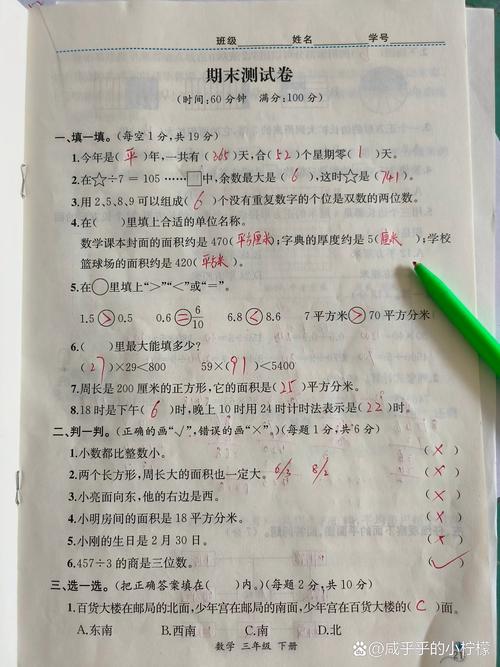 班级 姓名 学号
期末测试卷
(时间:60分钟 满分:100分)
一、填一填。(每空1分,共19分)
1.今年是(平)年,一共有(365)天,合(52)个星期零(1)天。
2.在☆÷7=105……□中,余数最大是(6),这时☆是(741)。
3.用2、5、8、9可以组成(6)个没有重复数字的个位是双数的两位数。
4.在( )里填上合适的单位名称。
数学课本封面的面积约是470(平方厘米);字典的厚度约是5(厘米);学校
篮球场的面积约是420(平方米)。
5.在○里填上“>”“<”或“=”。
1.5>0.5 0.6=6/10 6.8<8.6 7平方米>70平方分米
6.( )里最大能填多少?
(27)×29<800 59×(91)<5400
7.周长是200厘米的正方形,它的面积是(25)平方分米。
8.18时是下午(6)时,晚上10时用24时计时法表示是(22)时。
二、判一判。(正确的画“√”,错误的画“×”。)(每题1分,共6分)
1.小数都比整数小。 (×)
2.两个长方形,周长大的面积也一定大。 6/3 8/2 (×)
3.小亮面向东,他的右边是西。 (×)
4.小明房间的面积是18平方分米。 (×)
5.小刚的生日是2月30日。 (×)
6.457÷3的商是三位数。 (√)
三、选一选。(把正确答案填在( )内。)(每题2分,共10分)
1.百货大楼在邮局的北面,少年宫在邮局的南面,少年宫在百货大楼的(C)面。
A.东南 B.西南 C.南 D.北
数学 三年级 下册
@咸乎乎的小柠檬